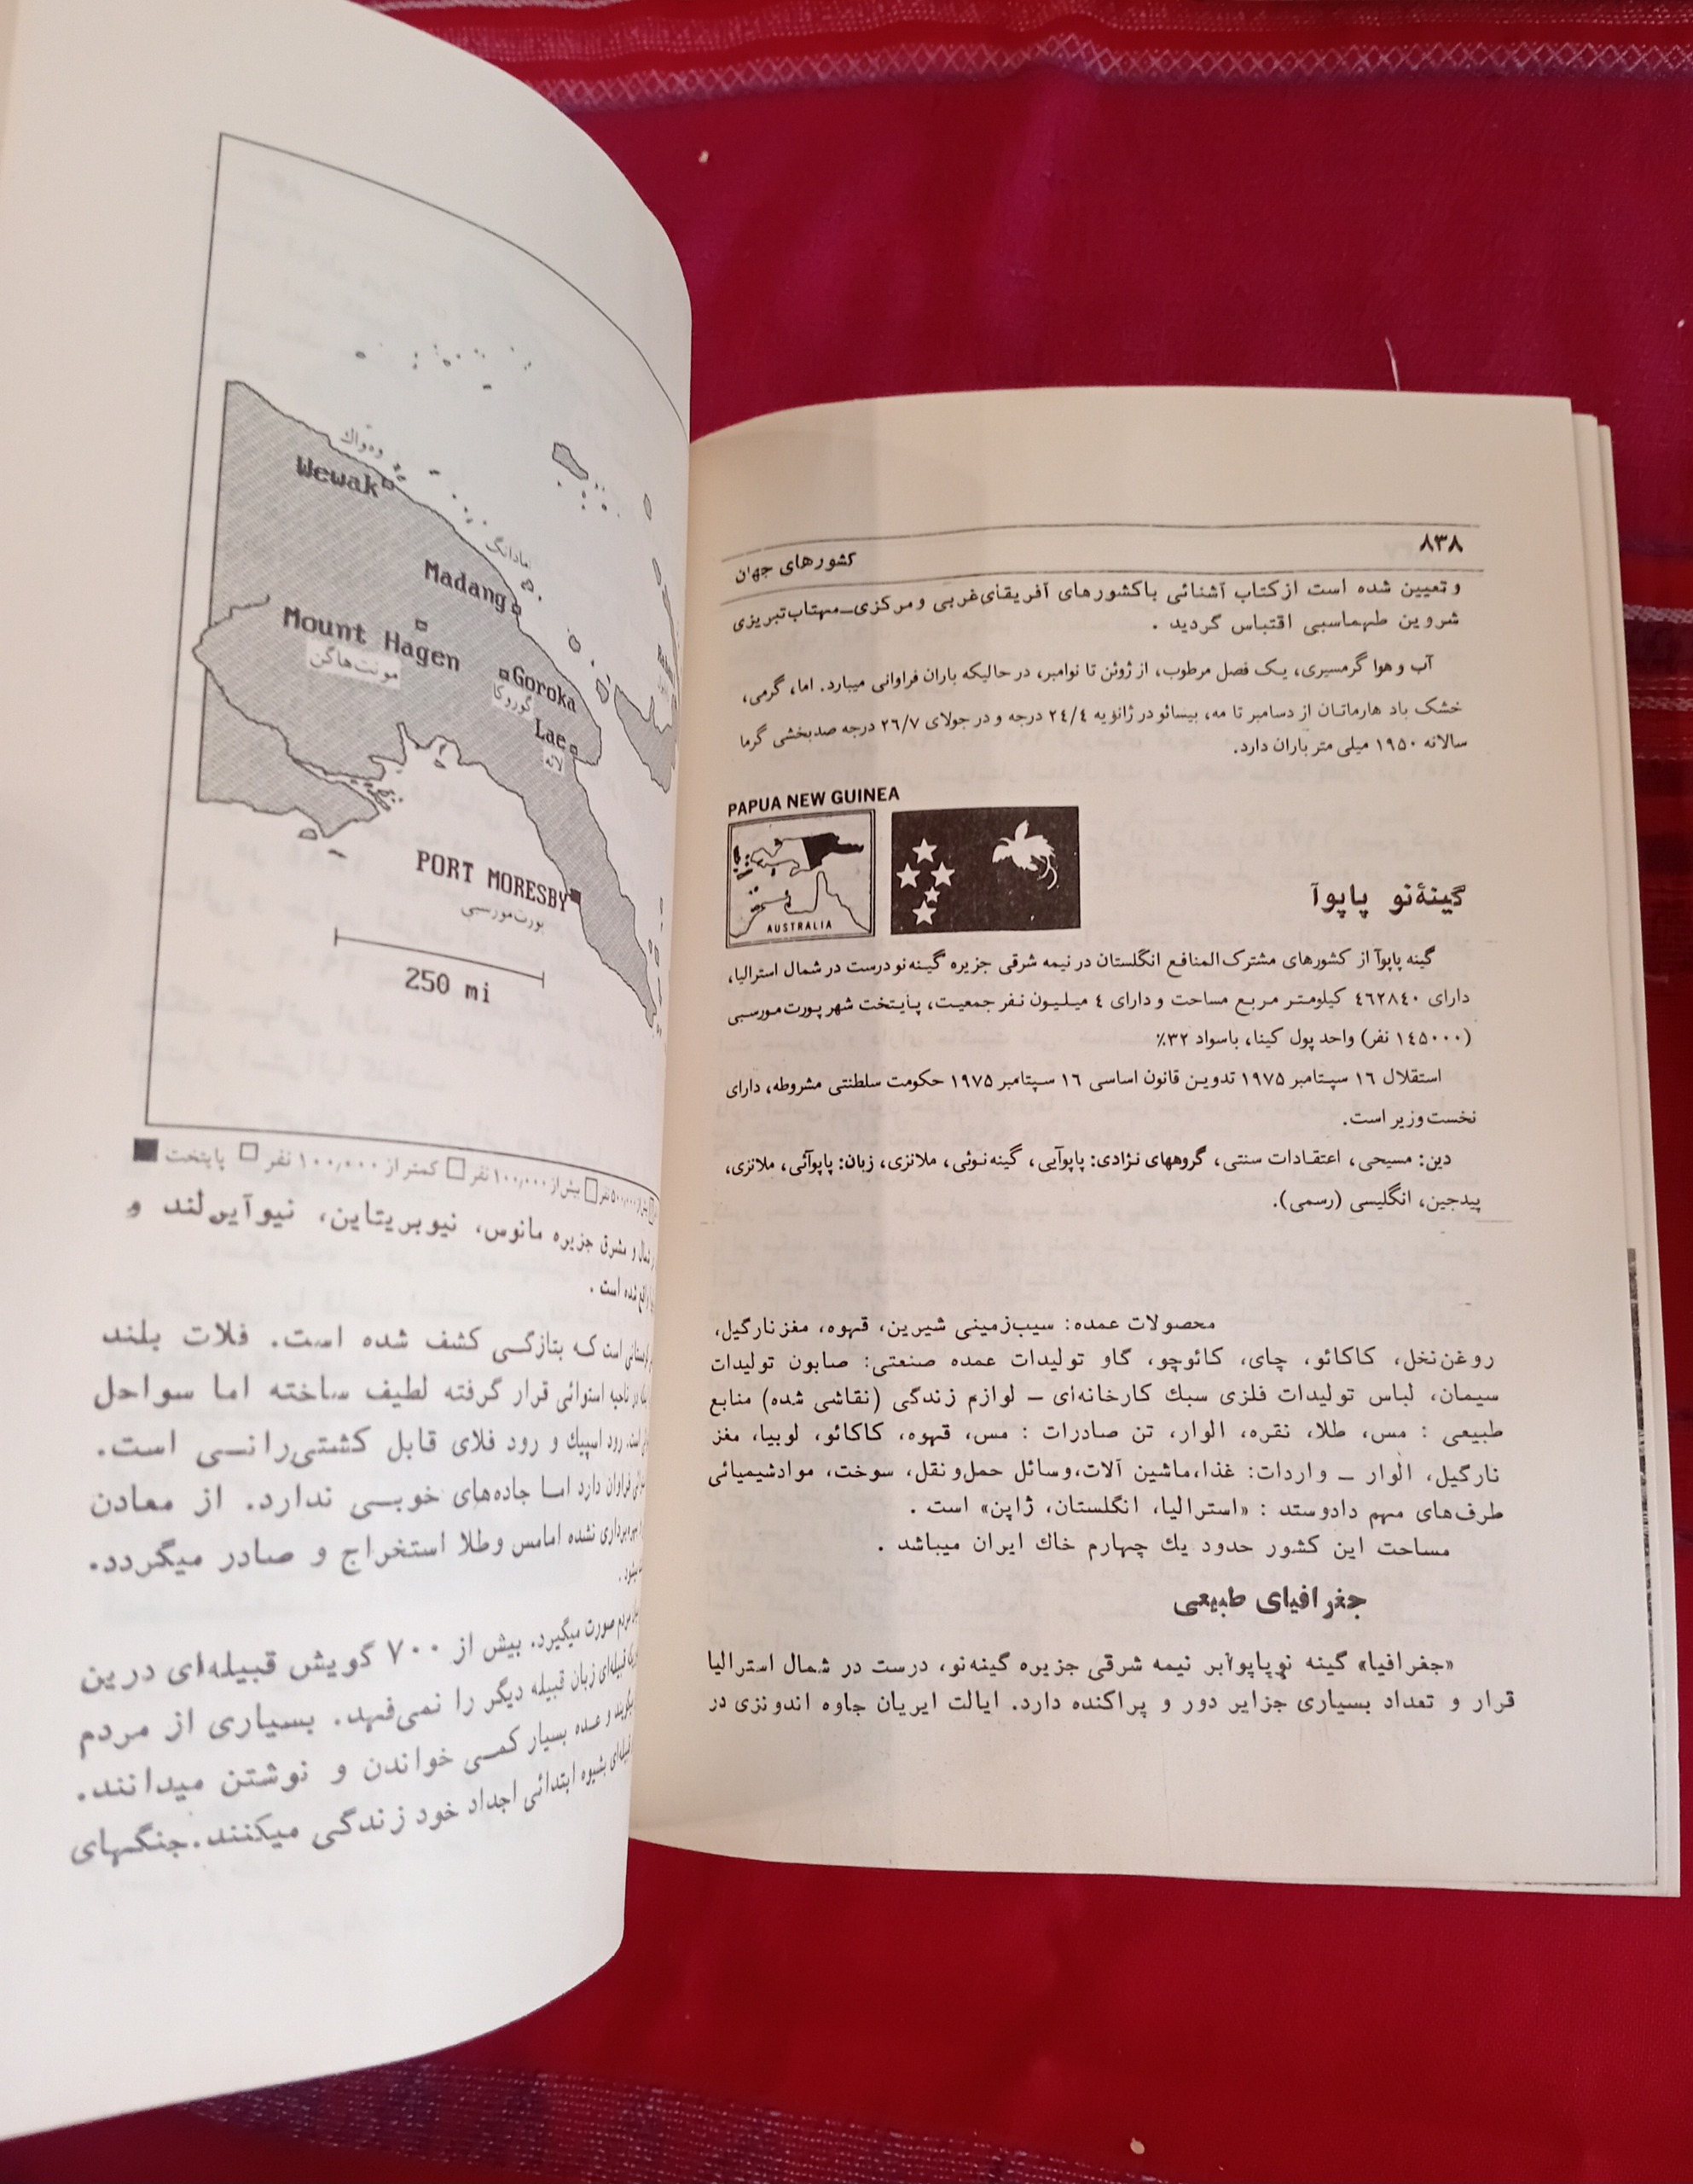 ۸۳۸
کشورهای جهان
وتعیین شده است ازکتاب آشنائی باکشورهای آفریقای‌غربی ومرکزی_مهتاب‌تبریزی
شروین طهماسبی اقتباس گردید .
آب و هوا گرمسیری، یک فصل مرطوب، از ژوئن تا نوامبر، در حالیکه باران فراوانی میبارد. اما، گرمی،
خشک باد هارماتان از دسامبر تا مه، بیسائو در ژانویه ۲۴/۴ درجه و در جولای ۲۶/۷ درجه صدبخشی گرما
سالانه ۱۹۵۰ میلی متر باران دارد.
PAPUA NEW GUINEA
AUSTRALIA
گینهٔ‌نو پاپوآ
گینه پاپوآ از کشورهای مشترک‌المنافع انگلستان در نیمه شرقی جزیره گینه‌نو درست در شمال استرالیا،
دارای ۴۶۲۸۴۰ کیلومتر مربع مساحت و دارای ۴ میلیون نفر جمعیت، پایتخت شهر پورت‌مورسبی
(۱۴۵۰۰۰ نفر) واحد پول کینا، باسواد ۳۲٪
استقلال ۱۶ سپتامبر ۱۹۷۵ تدوین قانون اساسی ۱۶ سپتامبر ۱۹۷۵ حکومت سلطنتی مشروطه، دارای
نخست‌وزیر است.
دین: مسیحی، اعتقادات سنتی، گروههای نژادی: پاپوآیی، گینه‌نوئی، ملانزی، زبان: پاپوآئی، ملانزی،
پیدجین، انگلیسی (رسمی).
محصولات عمده: سیب‌زمینی شیرین، قهوه، مغزنارگیل،
روغن‌نخل، کاکائو، چای، کائوچو، گاو تولیدات عمده صنعتی: صابون تولیدات
سیمان، لباس تولیدات فلزی سبك کارخانه‌ای – لوازم زندگی (نقاشی شده) منابع
طبیعی : مس، طلا، نقره، الوار، تن صادرات : مس، قهوه، کاکائو، لوبیا، مغز
نارگیل، الوار – واردات: غذا،ماشین آلات،وسائل حمل‌ونقل، سوخت، موادشیمیائی
طرف‌های مهم دادوستد : «استرالیا، انگلستان، ژاپن» است .
مساحت این کشور حدود یك چهارم خاك ایران میباشد .
جغرافیای طبیعی
«جغرافیا» گینه نوپاپوآبر نیمه شرقی جزیره گینه‌نو، درست در شمال استرالیا
قرار و تعداد بسیاری جزایر دور و پراکنده دارد. ایالت ایریان جاوه اندونزی در
وه‌واك
Wewak
مادانگ
Madang
Mount Hagen
مونت‌هاگن
Goroka
گوروکا
Lae
لائه
PORT MORESBY
پورت‌مورسبی
250 mi
پایتخت
کمتر از ۱۰۰٫۰۰۰ نفر
بیش‌از ۱۰۰٫۰۰۰ نفر
شمال و مشرق جزیره مانوس، نیوبریتاین، نیوآیرلند و
واقع شده است .
است که بتازگی کشف شده است. فلات بلند
در ناحیه استوائی قرار گرفته لطیف ساخته اما سواحل
است. رود اسپیك و رود فلای قابل کشتی‌رانی است.
فراوان دارد اما جاده‌های خوبی ندارد. از معادن
نشده امامس وطلا استخراج و صادر میگردد.
مردم صورت میگیرد. بیش از ۷۰۰ گویش قبیله‌ای درین
قبیله‌ای زبان قبیله دیگر را نمی‌فهد. بسیاری از مردم
و عده بسیار کمی خواندن و نوشتن میدانند.
بشیوه ابتدائی اجداد خود زندگی میکنند.جنگهای